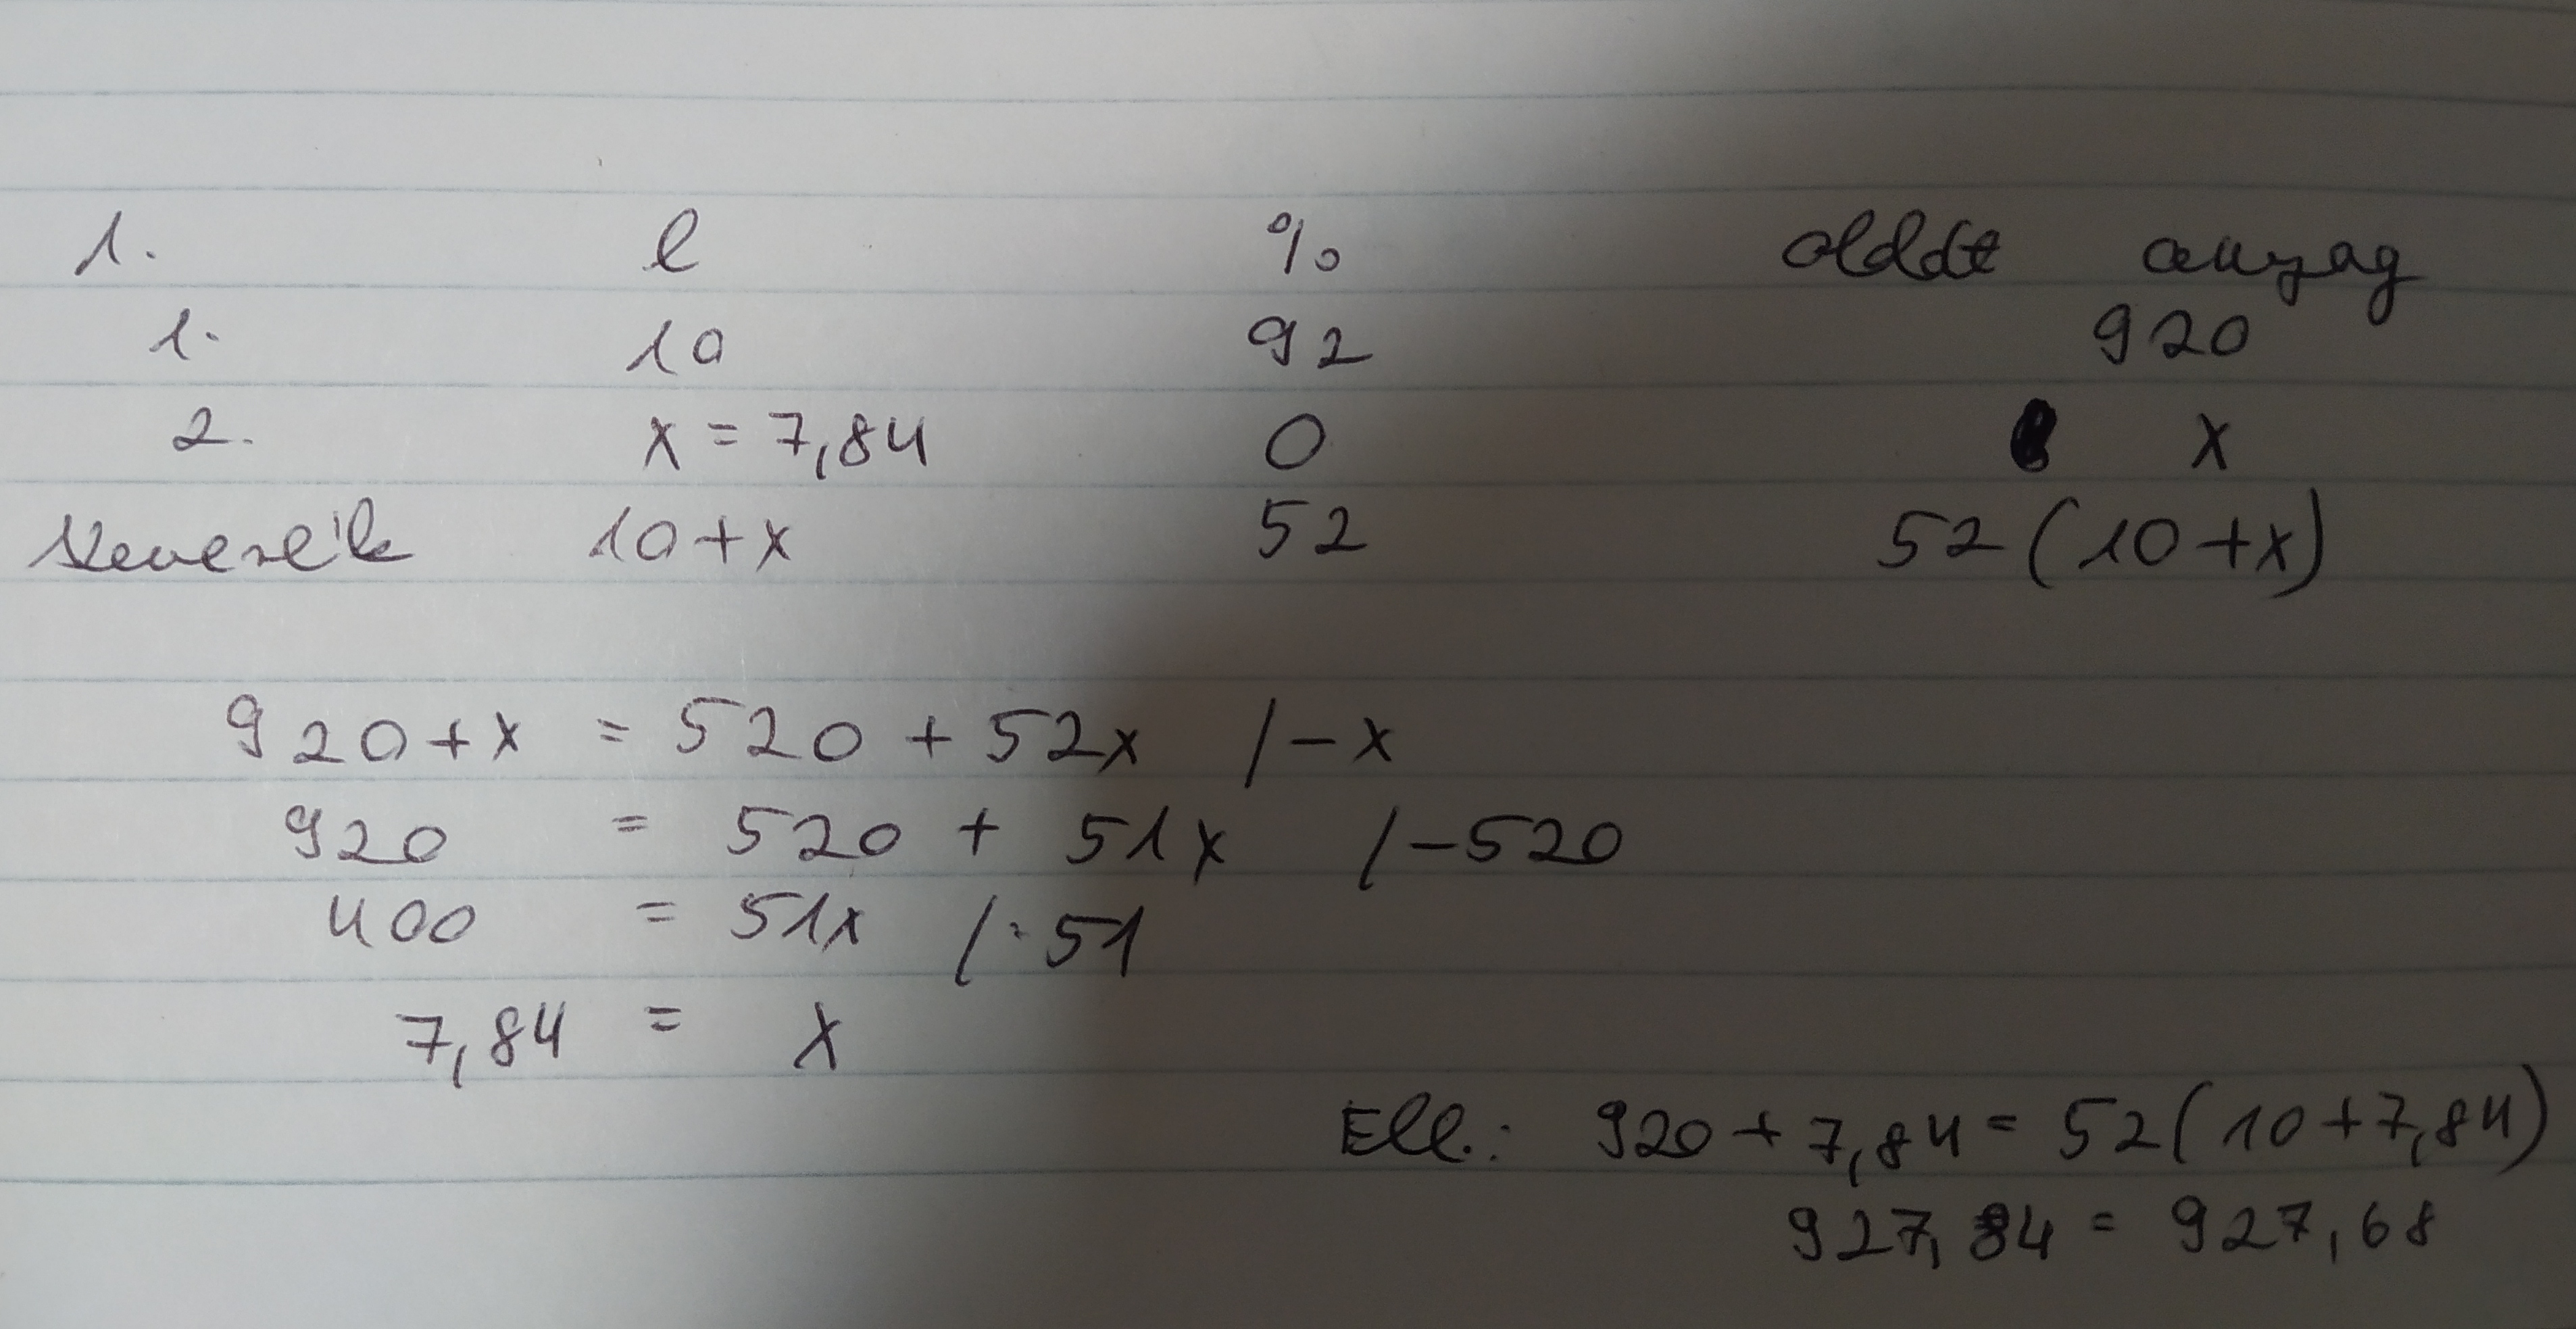 1. l % olddt anyag
1. 10 92 920
2. x = 7,84 0 x
Keverék 10+x 52 52(10+x)
920+x = 520 + 52x /-x
920 = 520 + 51x /-520
400 = 51x /:51
7,84 = x
Ell.: 920 + 7,84 = 52(10+7,84)
927,84 = 927,68